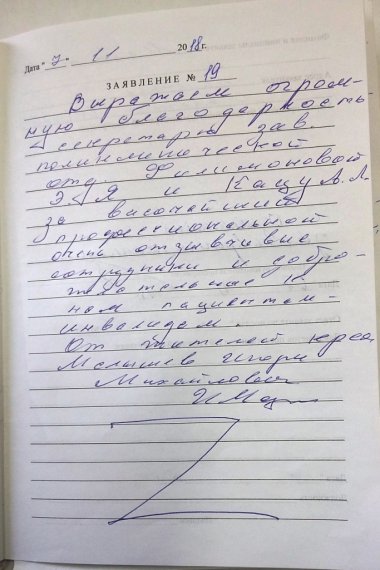 Дата " 7 " 11 2018 г.
ЗАЯВЛЕНИЕ № 19
Выражаем огром-
ную благодарность
секретарю зав.
поликлинической
отд. Филимоновой
Э.Я и Кацу А.Л.
за височайший
профессиональной
очень отзывчивые
сотрудники и добро-
жательные к
нам пациентам-
инвалидам.
От жителей
Малышев Игорь
Михайлович